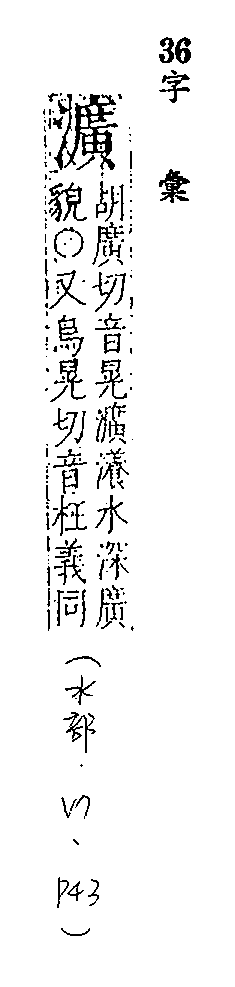 36字彙
瀇
胡廣切音晃瀇瀁水深廣
貌○又烏晃切音枉義同
(水部.巳、P43)